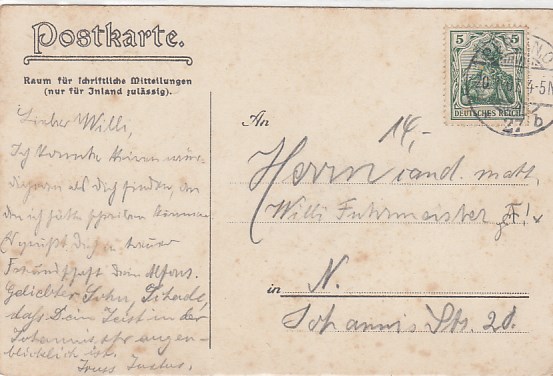 Postkarte.
Raum für schriftliche Mitteilungen
(nur für Inland zulässig).
5 5
DEUTSCHES REICH
4-5N
27 b
Lieber Willi,
Ich konnte keinen wür-
digeren als Dich finden, an
den ich hätte schreiben können
Es grüßt Dich in treuer
Freundschaft Dein Alfons.
Geliebter Sohn,
daß Dein Geist in der
Johannisstr augen-
blicklich ist.
An
14,-
Herrn cand. math.
Willi Fuhrmeister
in N.
Johannis Str. 20.